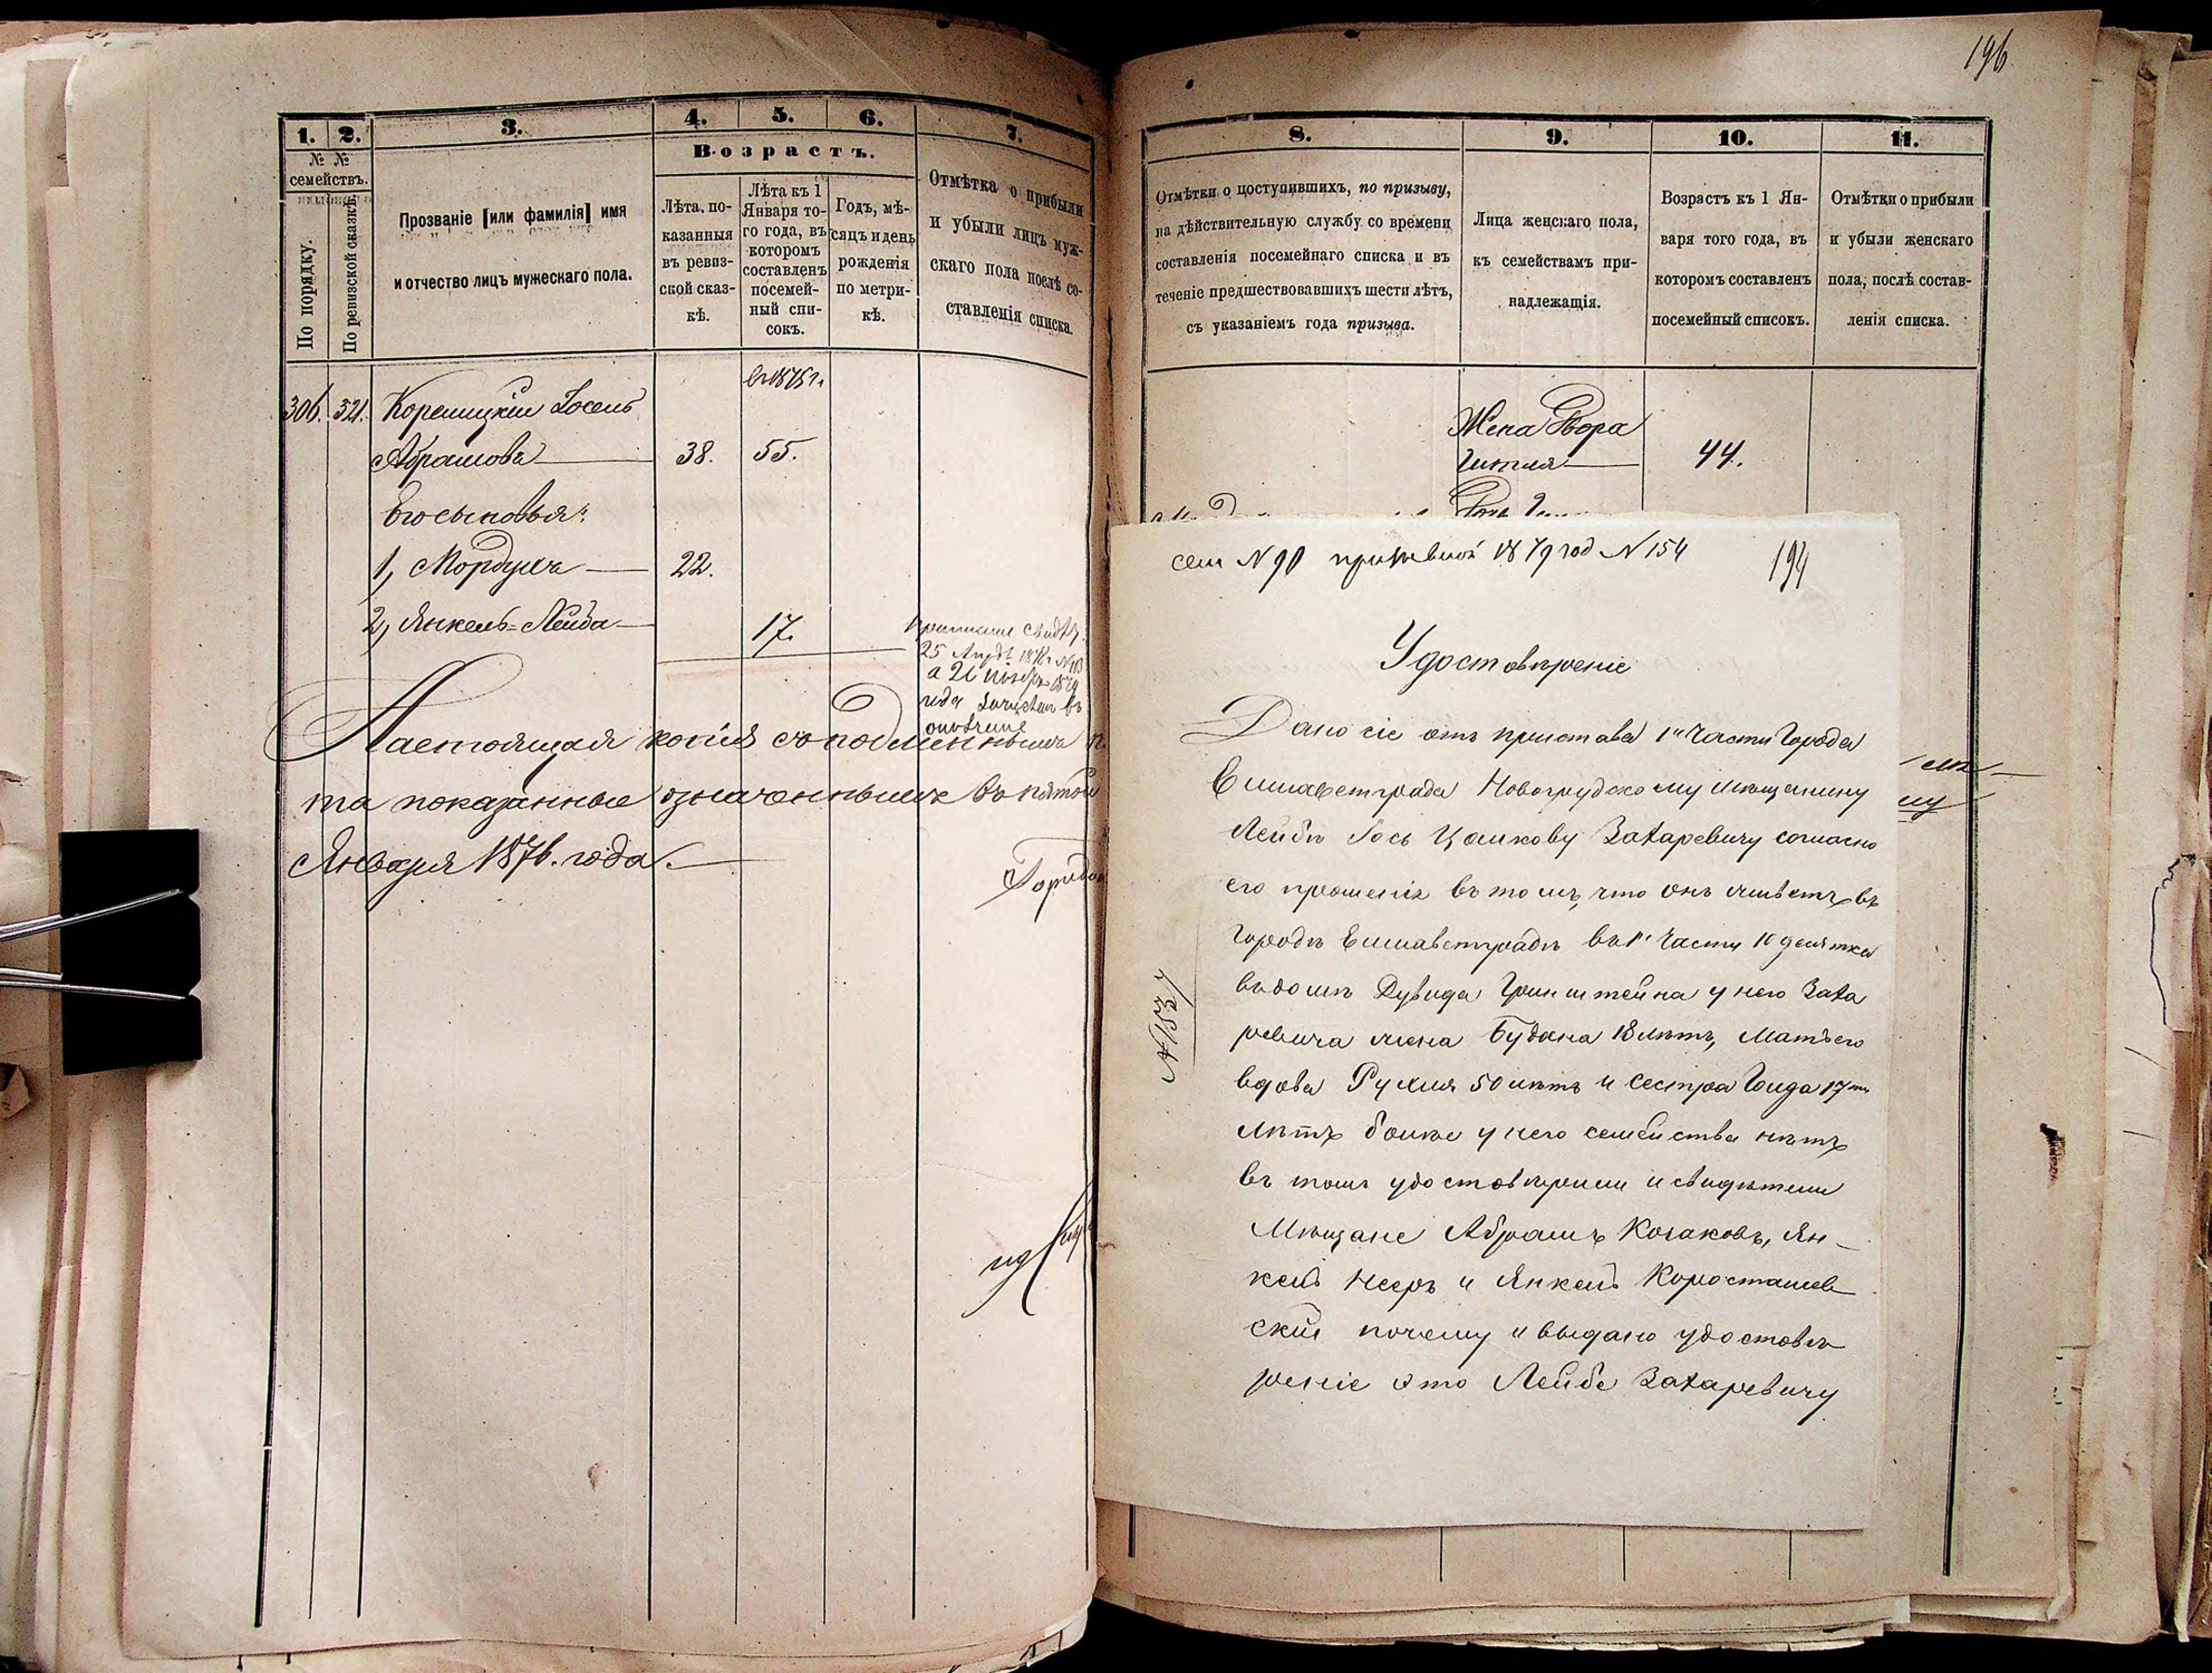 196
1. 2. 3. 4. 5. 6. 7.
№ №
семействъ.
По порядку.
По ревизской сказкѣ.
Прозваніе [или фамилія] имя
и отчество лицъ мужескаго пола.
Возрастъ.
Лѣта, по-
казанныя
въ ревиз-
ской сказ-
кѣ.
Лѣта къ 1
Января то-
го года, въ
которомъ
составленъ
посемей-
ный спи-
сокъ.
Годъ, мѣ-
сяцъ и день
рожденія
по метри-
кѣ.
Отмѣтка о прибыли
и убыли лицъ муж-
скаго пола послѣ со-
ставленія списка.
въ 1875 г.
306. 321. Корелицкій Іосель
Абрамовъ 38. 55.
Его сыновья:
1, Мордухъ 22.
2, Янкель-Лейба 17.
25
года
Настоящая копія съ подлиннымъ
та показанные означеннымъ въ пятой
Января 1876. года.
8. 9. 10. 11.
Отмѣтки о поступившихъ, по призыву,
на дѣйствительную службу со времени
составленія посемейнаго списка и въ
теченіе предшествовавшихъ шести лѣтъ,
съ указаніемъ года призыва.
Лица женскаго пола,
къ семействамъ при-
надлежащія.
Возрастъ къ 1 Ян-
варя того года, въ
которомъ составленъ
посемейный списокъ.
Отмѣтки о прибыли
и убыли женскаго
пола, послѣ состав-
ленія списка.
Жена Двора
Гитля 44.
сем N 90 призывной 1879 год N 154
194
Удостовѣреніе
Дано сіе отъ пристава 1й части Города
Елисаветграда Новогрудскому мѣщанину
Лейбѣ Іось Цалкову Захаревичу согласно
его прошенія въ томъ, что онъ живетъ въ
городѣ Елисаветградѣ въ 1й части 10 десятка
въ домѣ Дувида Гринштейна у него Заха
ревича жена Будана 18 лѣтъ, Мать его
вдова Рухля 50 лѣтъ и сестра Гида 17ти
лѣтъ болѣе у него семейства нѣтъ
въ томъ удостовѣрили и свидѣтели
Мѣщане Абрамъ Кочаковъ, Ян-
кель Нееръ и Янкель Коросташев
скій почему и выдано удостовѣ
реніе это Лейбе Захаревичу